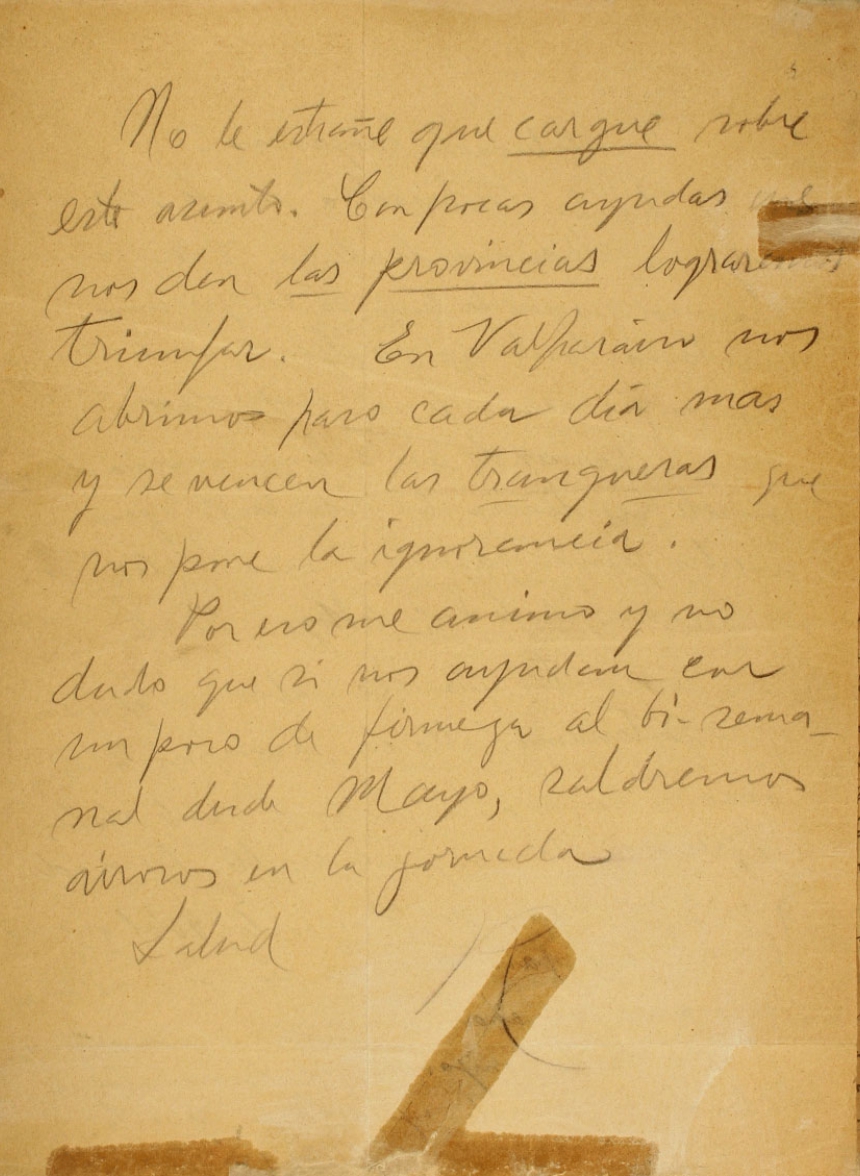 No le estrañe que cargue sobre
este asunto. Con pocas ayudas que
nos den las provincias lograremos
triunfar. En Valparaiso nos
abrimos paso cada dia mas
y se vencen las tranqueras que
nos pone la ignorancia.
Por eso me animo y no
dudo que si nos ayudan con
un poco de firmeza al bi-sema-
nal desde Mayo, saldremos
airosos en la jornada
Salud